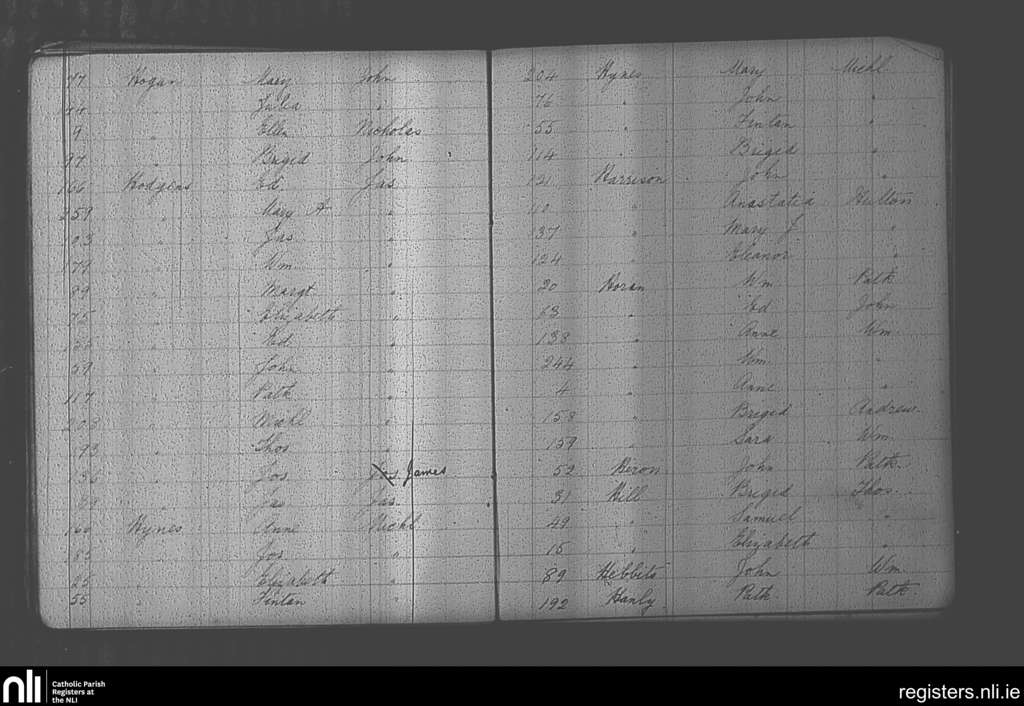 47 Hogan Mary John
44 " Julia "
9 " Ellen Nicholas
97 " Brigid John
166 Hodgens Ed. Jas
259 " Mary A "
103 " Jas "
179 " Wm "
89 " Margt "
75 " Elizabeth "
" Ed. "
59 " John "
117 " Patk "
203 " Michl "
93 " Thos "
36 " Jos James
" Jas Jas.
166 Hynes Anne Michl
" Jos "
25 " Elizabeth "
55 " Fintan "
204 Hynes Mary Michl
76 " John "
55 " Fintan "
114 " Brigid "
121 Harrison John "
110 " Anastatia Hutton
137 " Mary J "
124 " Eleanor "
20 Horan Wm Patk
63 " Ed John
138 " Anne Wm
244 " Wm "
4 " Anne "
158 " Brigid Andrew
159 " Sara Wm
52 John Patk.
31 Hill Brigid Thos.
49 " Samuel "
15 " Elizabeth "
89 Hebbits John Wm
192 Hanly Patk Patk.
nli Catholic Parish
Registers at
the NLI
registers.nli.ie